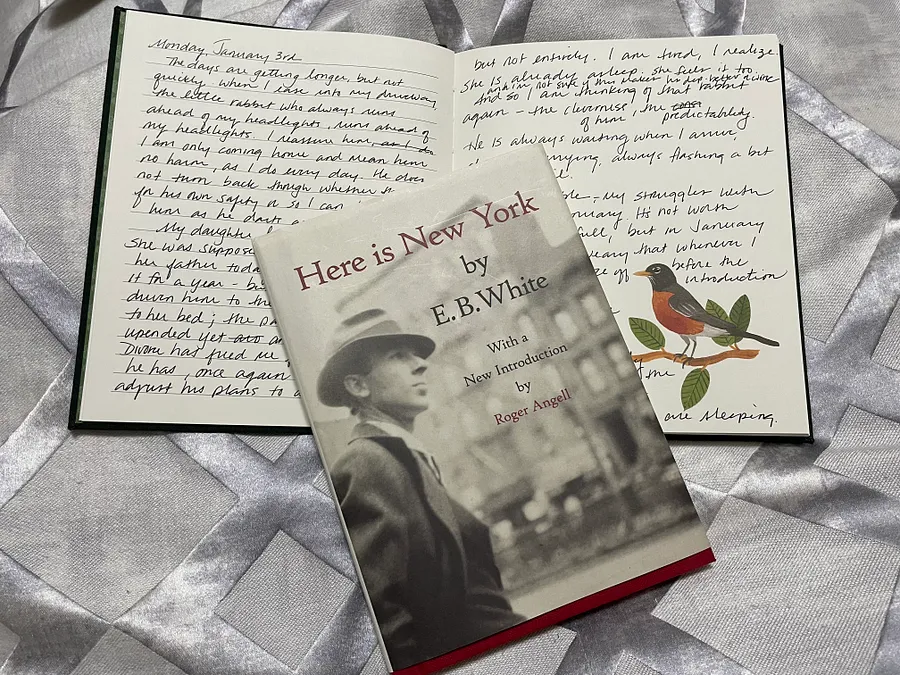 Monday, January 3rd
The days are getting longer, but not
quickly, when I ease into my driveway,
the little rabbit who always runs
ahead of my headlights, runs ahead of
my headlights. I reassure him, as I do
I am only coming home and mean him
no harm, as I do every day. He does
not turn back though whether
for his own safety or so I can
of him as he darts
My daughter
She was suppose
her father toda
it for a year - b
driven him to the
to her bed; the
upended yet
Divorce has freed me
he has, once again
adjust his plans to
but not entirely. I am tired, I realize
She is already asleep. She feels it too,
and I'm not sure if this makes
And so I am thinking of that rabbit
again - the cleverness, the
of him, predictability.
He is always waiting when I arrive,
always flashing a bit
my struggles with
It's not worth
but in January
that whenever I
before the
introduction
me
are sleeping.
Here is New York
by
E. B. White
With a
New Introduction
by
Roger Angell